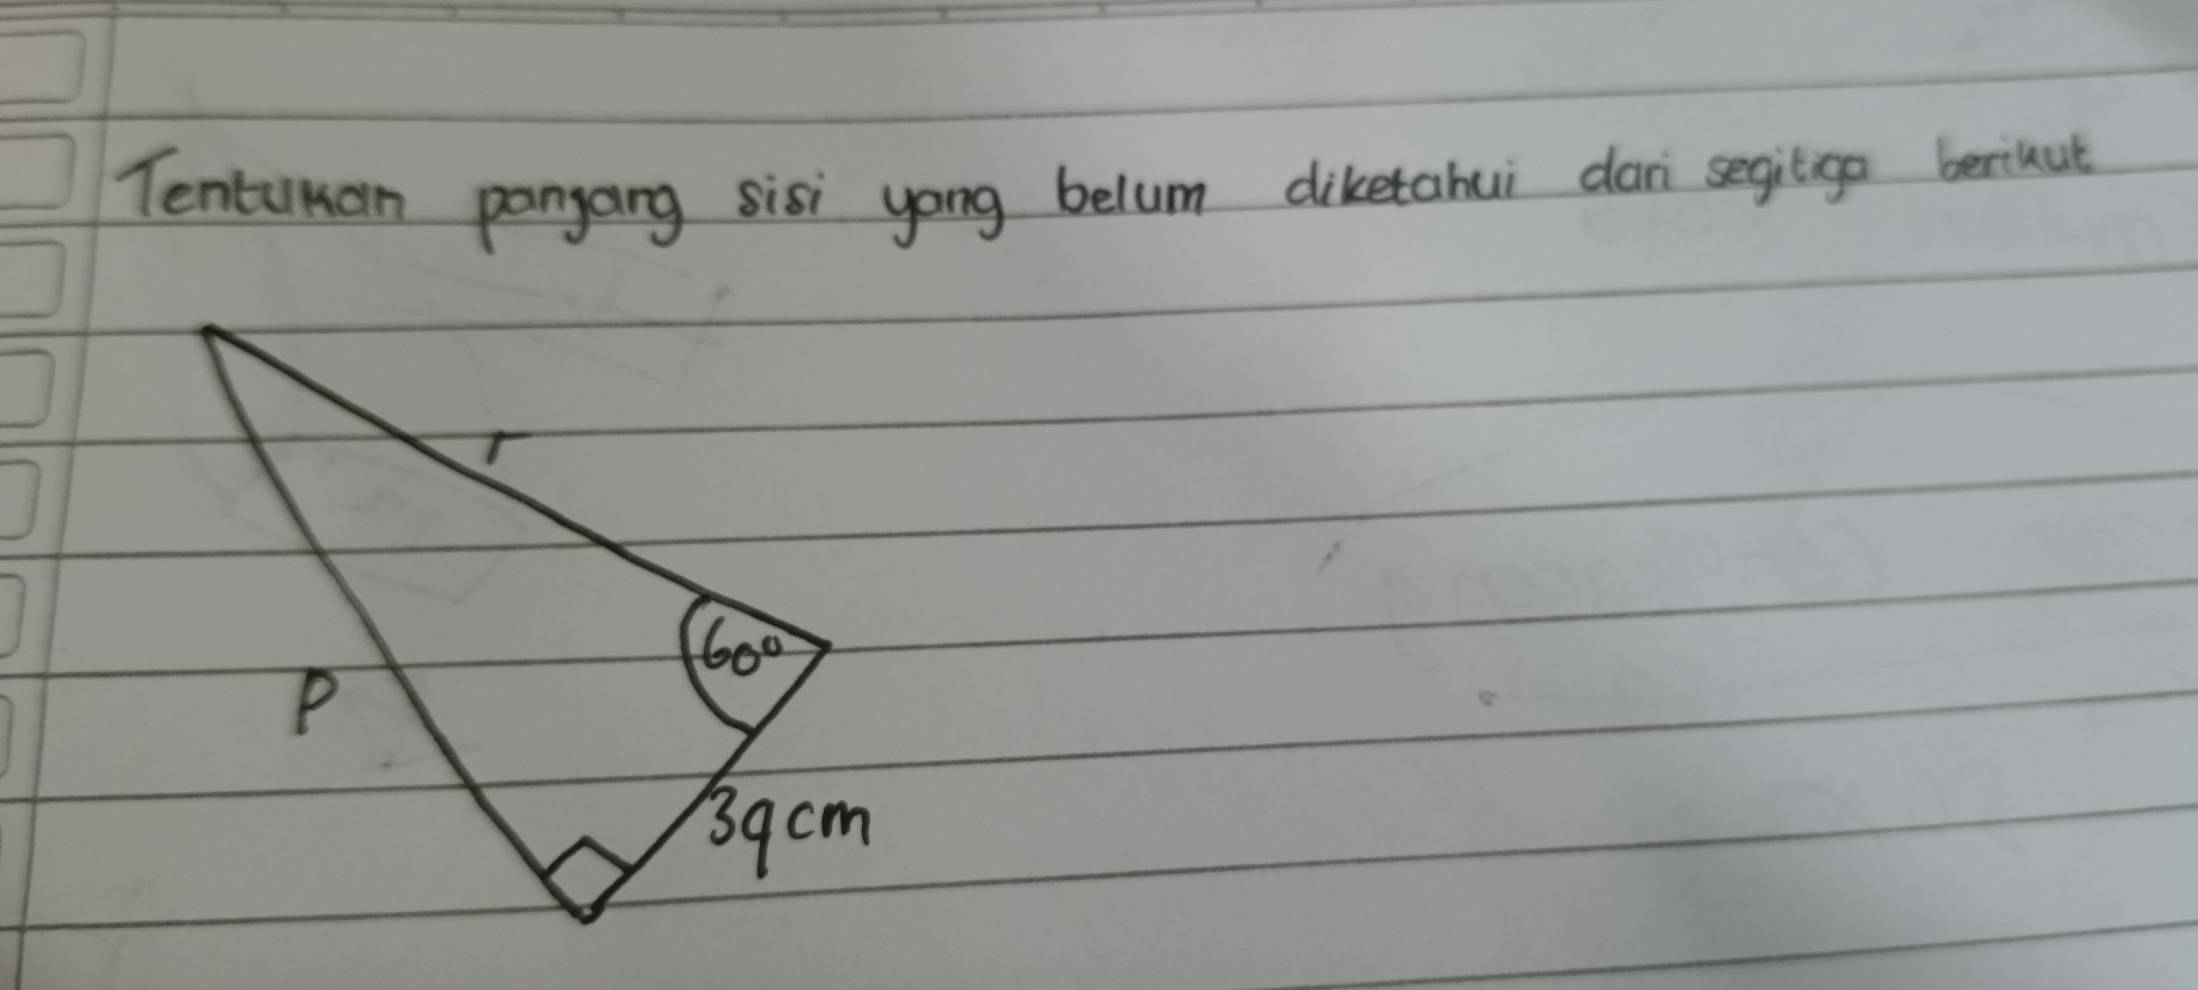 Tentukan panjang sisi yang belum diketahui dari segitiga berikut
r
60°
P
39cm